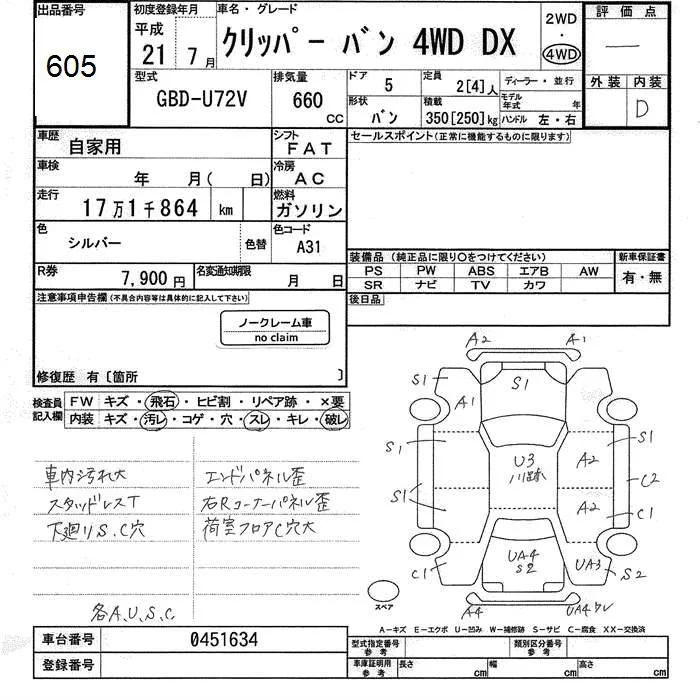 出品番号
605
初度登録年月
平成
21 7月
車名・グレード
クリッパー バン 4WD DX
2WD
・
4WD
評価点
―
外装 内装
D
型式
GBD-U72V
排気量
660
CC
ドア
5
定員
2[4]人
ディーラー・並行
形状
バン
積載
350[250]kg
モデル年式 年
ハンドル 左・右
車歴
自家用
シフト
FAT
車検
年 月( 日)
冷房
AC
走行
17万1千864 km
燃料
ガソリン
色
シルバー
色替
色コード
A31
R券
7,900円
名変通知期限
月 日
セールスポイント(正常に機能するものに限ります)
装備品(純正品に限り〇をつけてください)
PS PW ABS エアB AW
SR ナビ TV カワ
新車保証書
有・無
後日品
注意事項申告欄(不具合内容等は具体的に記入して下さい)
ノークレーム車
no claim
修復歴 有〔箇所 〕
検査員記入欄
FW キズ・飛石・ヒビ割・リペア跡・×要
内装 キズ・汚レ・コゲ・穴・スレ・キレ・破レ
車内汚れ大 エンドパネル歪
スタッドレスT 右Rコーナーパネル歪
下廻りS.C穴 荷室フロアC穴大
各A.U.S.C
A2 A1
S1 S1
A1
S1 S1
U3 A2
S1 C2
A2 C1
UA4 S2 UA3
C1 S2
A4 UA4ワレ
スペア
A―キズ E―エクボ U―凹み W―補修跡 S―サビ C―腐食 XX―交換済
車台番号 0451634
登録番号
型式指定番号 参考 類別区分番号 参考
車庫証明用 参考 長さ cm 幅 cm 高さ cm